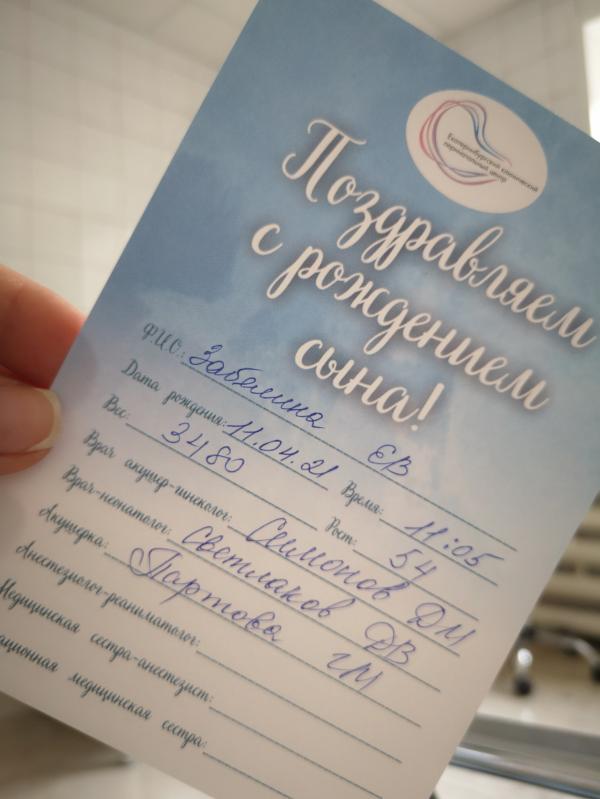 Екатеринбургский клинический
перинатальный центр
Поздравляем
с рождением
сына!
Ф.И.О.: Забелина ЕВ
Дата рождения: 11.04.21 Время: 11:05
Вес: 3480 Рост: 54
Врач акушер-гинеколог: Симонов ДМ
Врач-неонатолог: Светлаков ДВ
Акушерка: Партова ГМ
Анестезиолог-реаниматолог:
Медицинская сестра-анестезист:
медицинская сестра: